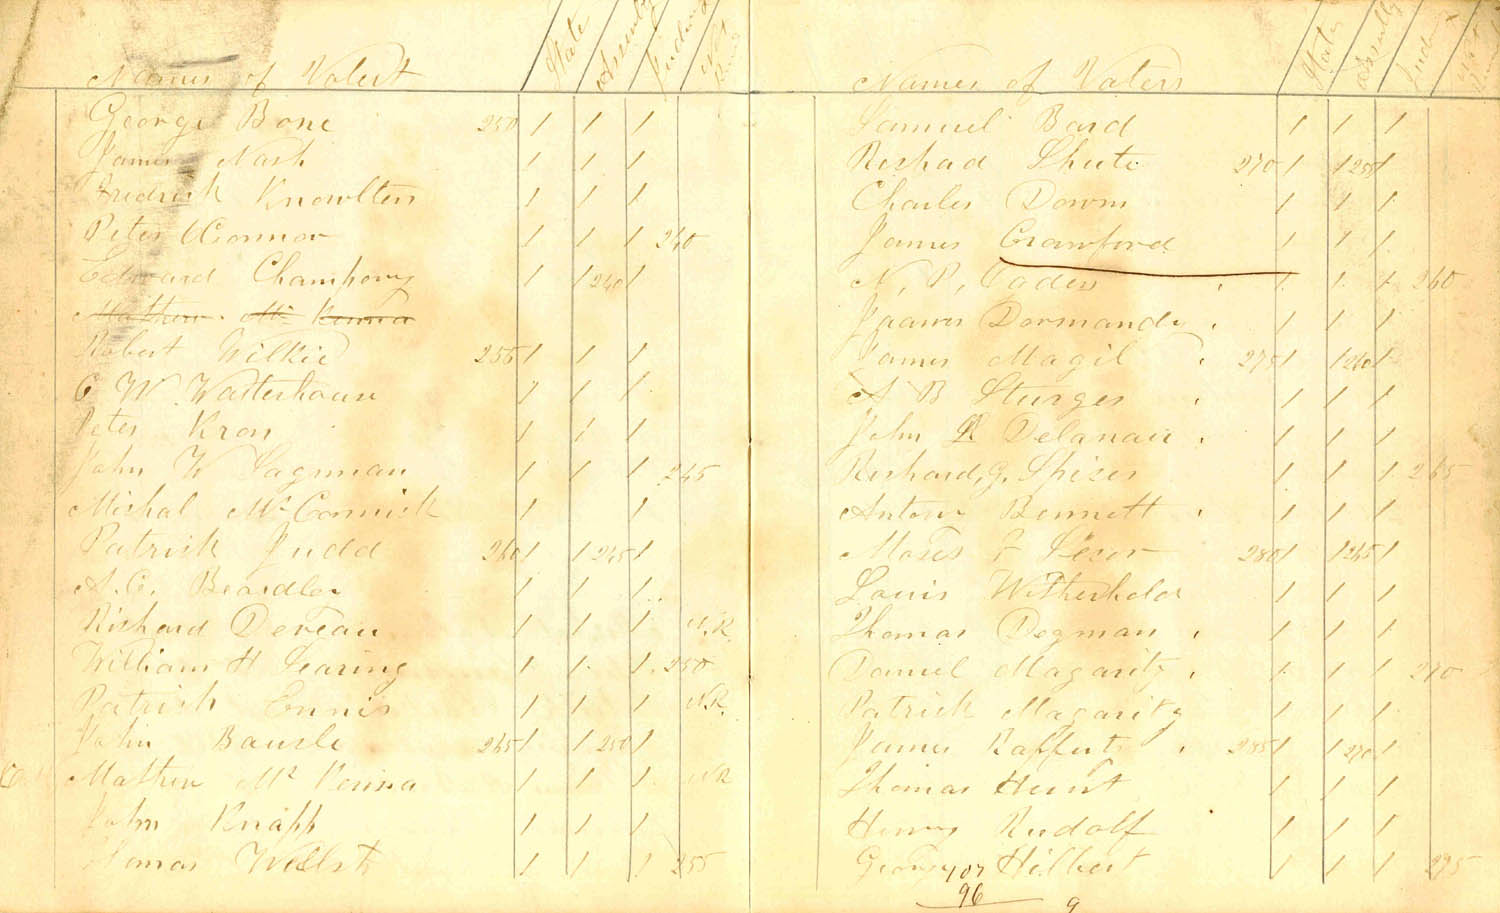 Names of Voters State Assembly Judiciary Not
George Bone 250 1 1 1
James Nash 1 1 1
Fredrick Knowlten 1 1 1
Peter OConnor 1 1 1 240
Edward Champony 1 1 240 1
Mathew Mc Kenna
Robert Wilkie 255 1 1 1
C W Watterhouse 1 1 1
Peter Kron 1 1 1
John W Lagnman 1 1 1 245
Mishal Mc Cormisk 1 1 1
Patrick Judd 260 1 1 245 1
A. C. Beardler 1 1 1
Rishard Deveau 1 1 1 N.R.
William H Searing 1 1 1 250
Patrick Ennis 1 1 1 N.R.
John Bausle 265 1 1 250 1
Mathew Mc Kenna 1 1 1 N R
John Knapp 1 1 1
Thomas Wellst 1 1 1 255
Names of Voters State Assembly Not
Samuel Bard 1 1 1
Rishad Shute 270 1 1 255 1
Charles Down 1 1 1
James Crawford 1 1 1
N. P. 1 1 1 260
Dormandy 1 1 1
James Magil 275 1 1 260 1
A B Sturges 1 1 1
John R Delanair 1 1 1
Rishard, G. Spicer 1 1 1 265
Antone Bennett 1 1 1
Moses F Secor 280 1 1 265 1
Louis Witherhold 1 1 1
Thomas Degman 1 1 1
Daniel Magarity 1 1 1 270
Patrick Magarity 1 1 1
James Raffert 285 1 1 270 1
Thomas Hunt 1 1 1
Henry Rudolf 1 1 1
George Hilbert 1 1 1 275
96 9